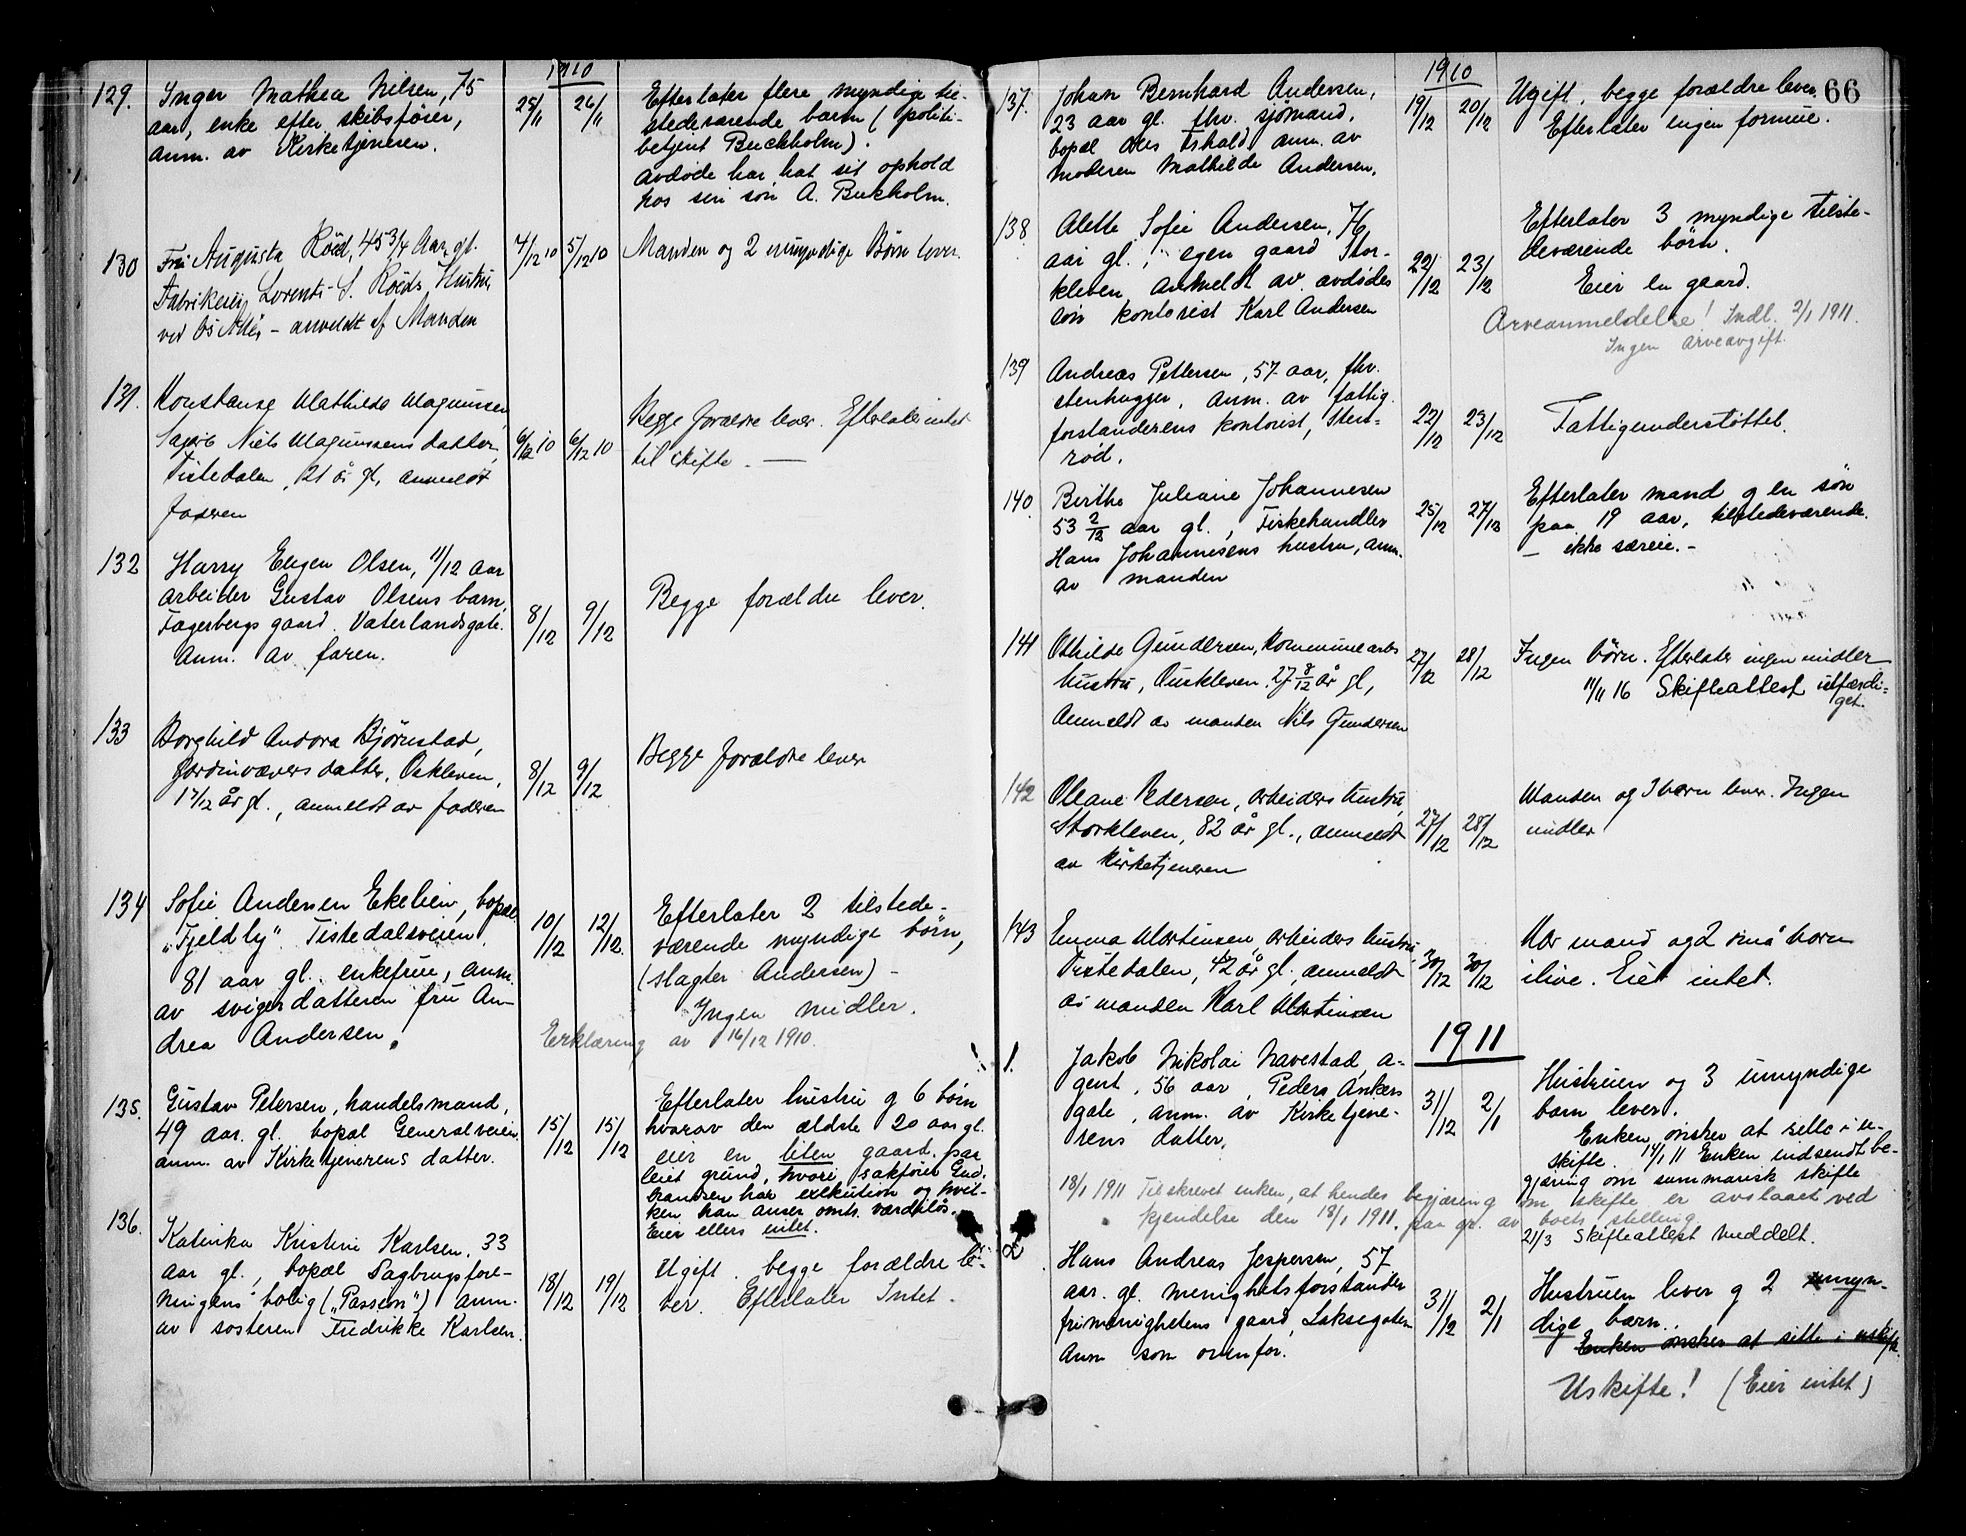 1910
129. Inger Mathea Nilsen, 75
aar, enke efter skibsfører,
anm. av Kirketjeneren.
25/11 26/11
Efterlater flere myndige til-
stedeværende barn (politi-
betjent Buckholm).
avdøde har hat sit ophold
hos sin søn A. Buckholm.
130 Fru Augusta Röed, 45 3/4 Aar gl.
Fabrikeier Lorents S. Röeds Hustru
ved Os Allé - anmeldt af Manden
4/12 10 5/12 10
Manden og 2 umyndige Börn lever.
131. Konstanse Mathilde Magnussen
Niels Magnussens datter,
Tistedalen, 21 år gl, anmeldt
faderen
6/12 10 6/12 10
Begge forældre lever. Efterlater intet
til skifte. —
132 Harry Eugen Olsen, 11/12 aar
arbeider Gustav Olsens barn,
Fagerbergs gaard. Vaterlandsgate.
Anm. av faren.
8/12 9/12
Begge forældre lever.
133 Borghild Andora Bjørnstad,
jordinvævers datter, Oskleven,
1 7/12 år gl., anmeldt av faderen
8/12 9/12
Begge forældre lever
134 Sofie Andersen Ekelien, bopæl
"Fjeldly" Tistedalsveien.
81 aar gl. enkefrue, anm.
av svigerdatteren fru An-
drea Andersen.
10/12 12/12.
Efterlater 2 tilstede-
værende myndige børn,
(slagter Andersen) -
Ingen midler.
Erklæring av 16/12 1910.
135. Gustav Petersen, handelsmand,
49 aar. gl. bopæl Generalveien
anm. av Kirketjenerens datter.
15/12 15/12
Efterlater hustru g 6 börn
hvorav den ældste 20 aar gl.
eier en liten gaard paa
leiet grund, hvori sakfører Gud-
brandsen har exekution og hvil-
ken han anser omtr. værdiløs.
Eier ellers intet.
136. Katinka Kristine Karlsen, 33
aar gl., bopæl Sagbrugsfore-
ningens bolig ("Passem") anm.
av søsteren Fredrikke Karlsen.
18/12 19/12
Ugift. begge forældre le-
ver. Efterlater Intet -
66
1910
137. Johan Bernhard Andersen,
23 aar gl. fhv. sjømand,
bopæl anm. av
moderen Mathilde Andersen.
19/12 20/12
Ugift, begge forældre lever.
Efterlater ingen formue.
138 Alette Sofie Andersen, 76
aar gl., egen gaard Stor-
kleven anmeldt av avdødes
søn kontorist Karl Andersen
22/12 23/12
Efterlater 3 myndige tilste-
deværende børn.
Eier en gaard.
Arveanmeldelse! Indl. 2/1 1911.
Ingen arveavgift.
139 Andreas Pettersen, 57 aar, fhv.
stenhugger, anm. av fattig-
forstanderens kontorist, Stens-
rød.
22/12 23/12
Fattigunderstøttet.
140. Berthe Juliane Johannesen
53 2/12 aar gl., Fiskehandler
Hans Johannesens hustru, anm.
av manden
25/12 27/12
Efterlater mand g en søn
paa 19 aar, tilstedeværende.
— ikke særeie. -
141 Othilde Gundersen, kommunearb
hustru, Ouskleven. 27 8/12 år gl,
Anmeldt av manden Nils Gundersen
27/12 28/12
Ingen børn. Efterlater ingen midler
11/11 16 Skifteattest utfærdi-
get.
142 Oleane Pedersen, arbeiders hustru,
Storkleven, 82 år gl., anmeldt
av kirketjeneren
27/12 28/12
Manden og 3 børn lever. Ingen
midler
143 Emma Martinsen, arbeiders hustru,
Tistedalen, 42 år gl. anmeldt
av manden Karl Martinsen
30/12 30/12
Har mand og 2 små barn
ilive. Eiet intet.
1911
1. Jakob Nikolai Navestad, a-
gent, 56 aar, Peders Ankers
gate, anm. av Kirketjene-
rens datter.
31/12 2/1
Hustruen og 3 umyndige
barn lever.
Enken ønsker at sitte i u-
skifte. 14/1 11 Enken indsendt be-
gjæring om summarisk skifte
18/1 1911 Tilskrevet enken, at hendes begjæring om skifte er avslaaet ved
kjendelse den 18/1 1911, paa gr. av boets stilling
21/3 Skifteattest meddelt.
2 Hans Andreas Jespersen, 57
aar. gl. menighetsforstander
frimenighetens gaard, Laksegaten
Anm som ovenfor.
31/12 2/1
Hustruen lever g 2 umyn-
dige bærn.
Enken ønsker at sitte i uskifte.
Uskifte! (Eier intet)